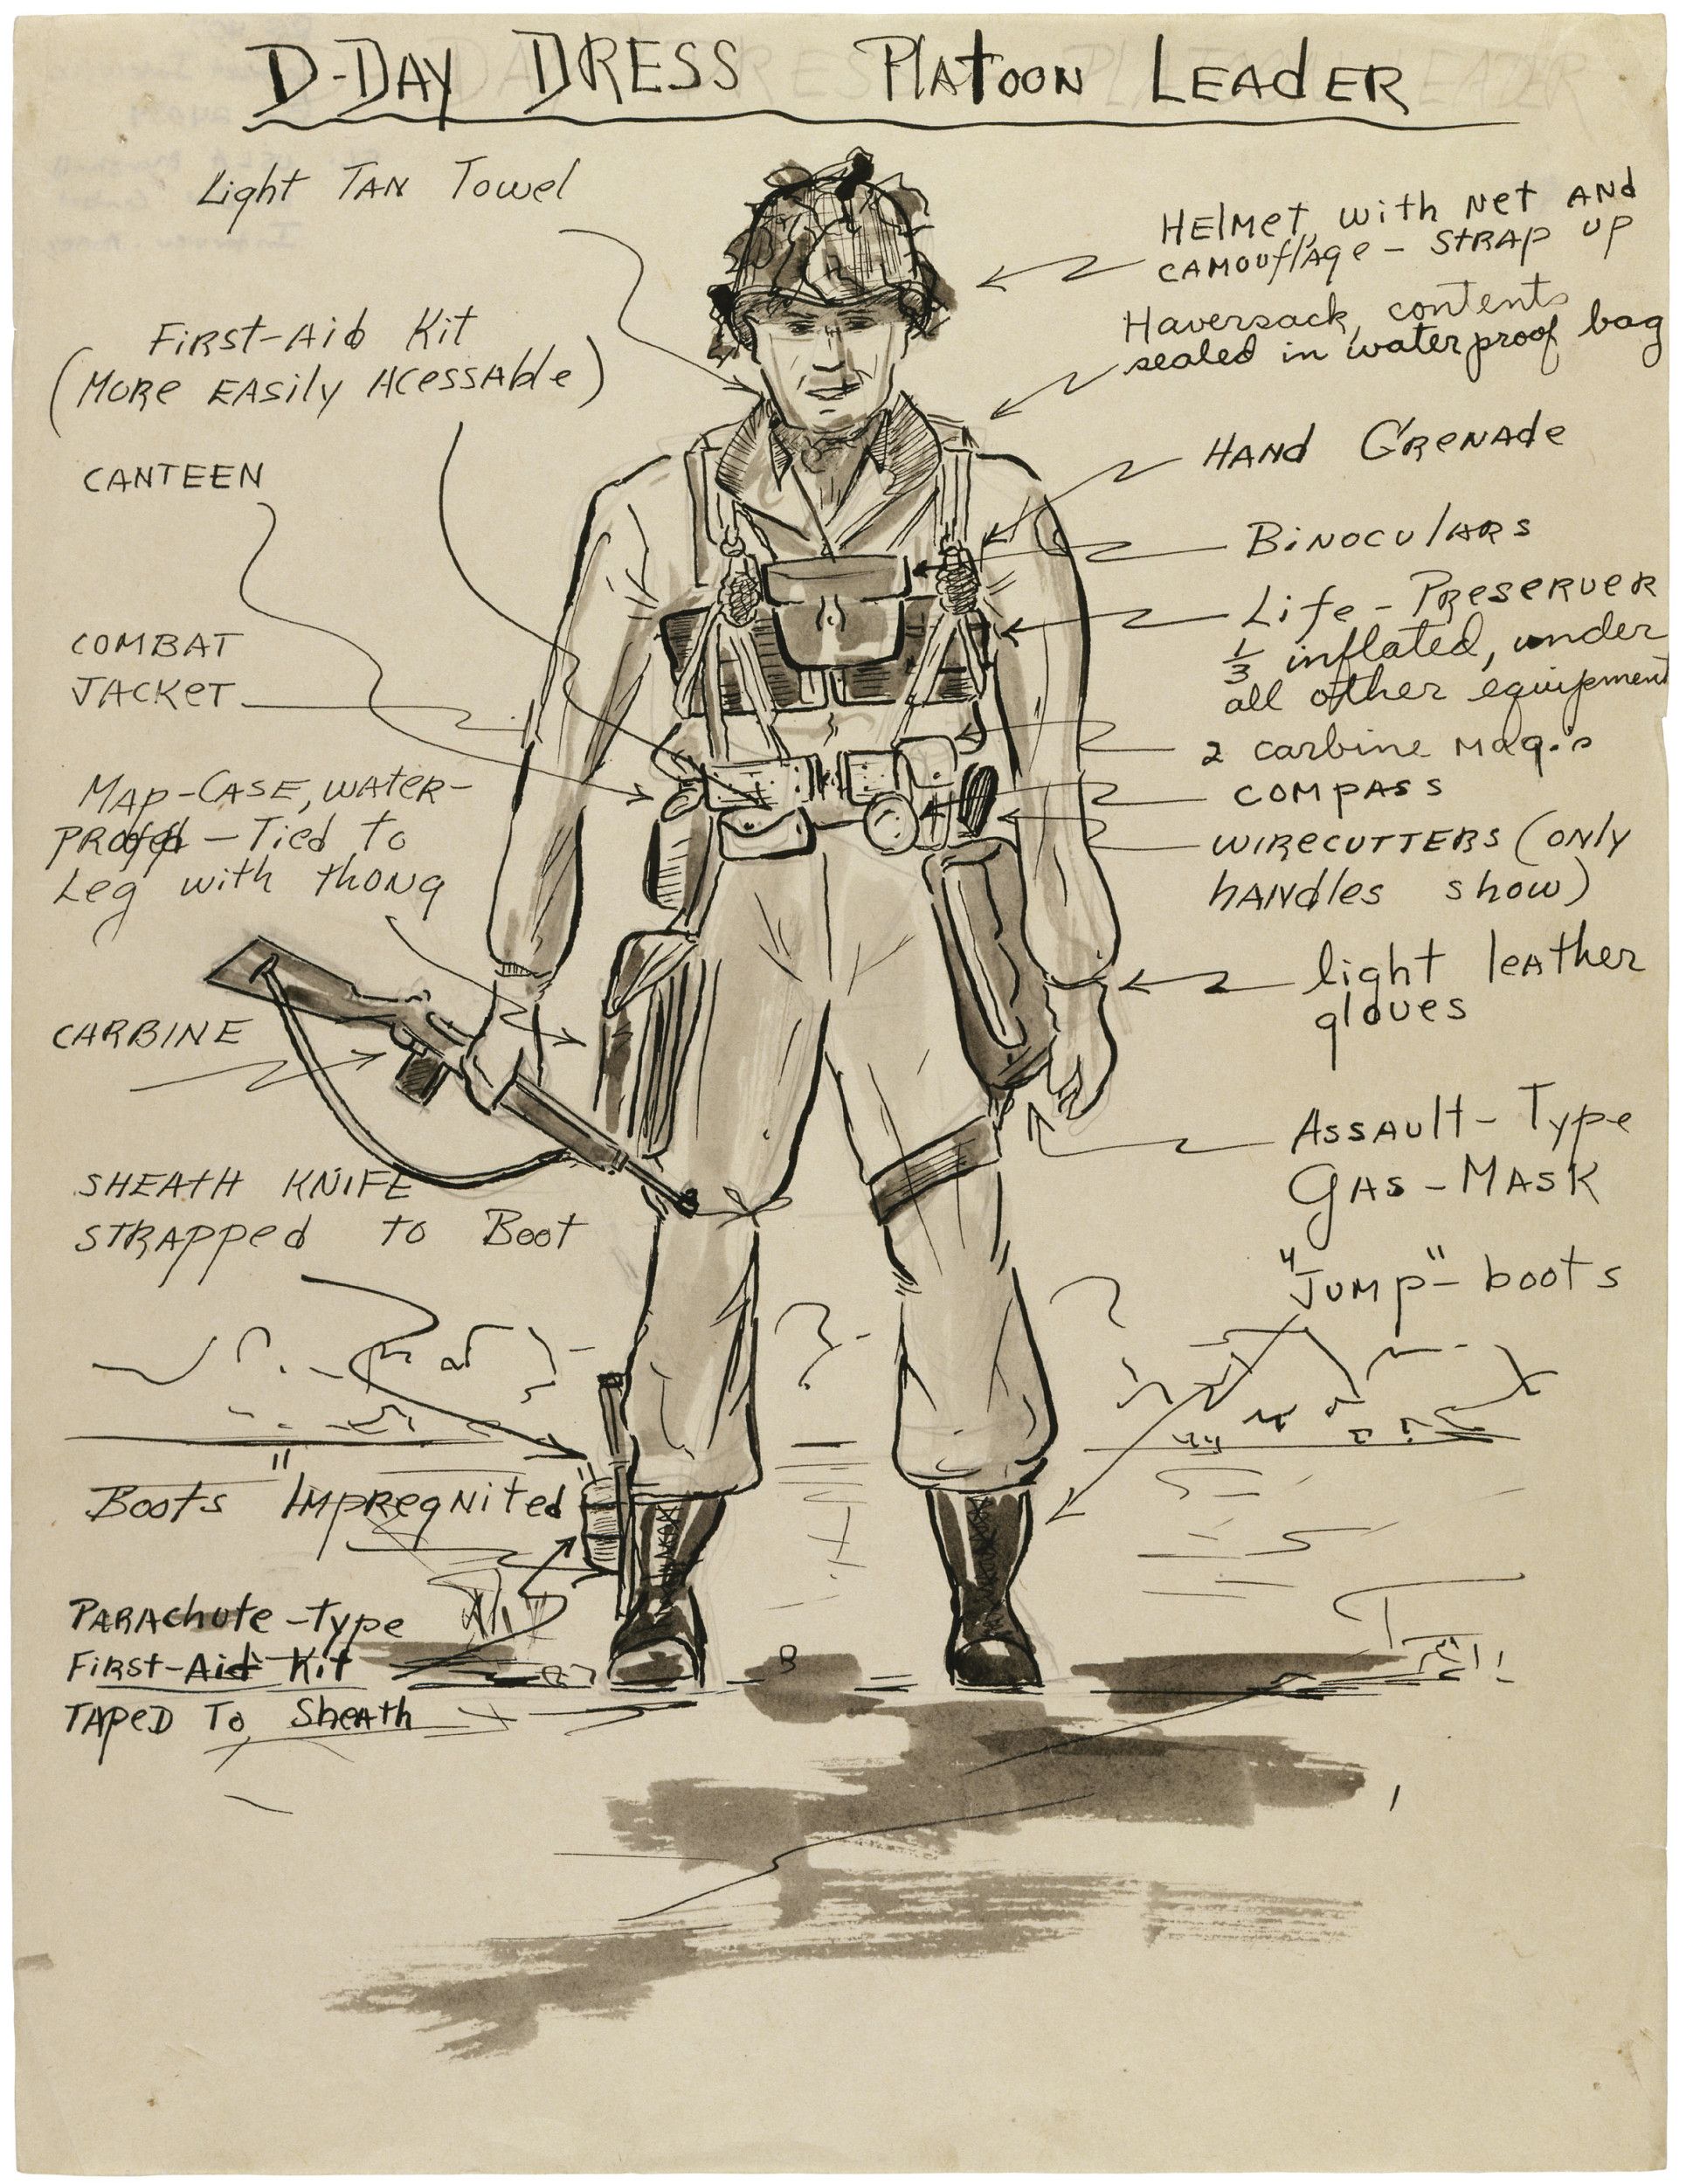 D-DAY DRESS PLATOON LEADER
Light TAN Towel
FIRST-AID Kit
(MORE EASily ACessAble)
CANTEEN
COMBAT
JACKET
MAP-CASE, WATER-
PROOFED - Tied to
Leg with thong
CARBINE
SHEATH KNIFE
STRAPPED TO BOOT
BOOTS "IMPREGNITED"
PARAchute-type
FIRST-Aid Kit
TAPED To Sheath
HELMET, with Net AND
CAMOUflAge - STRAP UP
Haversack, contents
sealed in waterproof bag
HAND GRENADE
BINOCULARS
Life-PRESERVER
1/3 inflated, under
all other equipment
2 carbine MAg.s
COMPASS
WIRECUTTERS (ONLY
HANdles show)
light leATHER
gloves
ASSAULT-Type
GAS-MASK
"JUMP"-boots